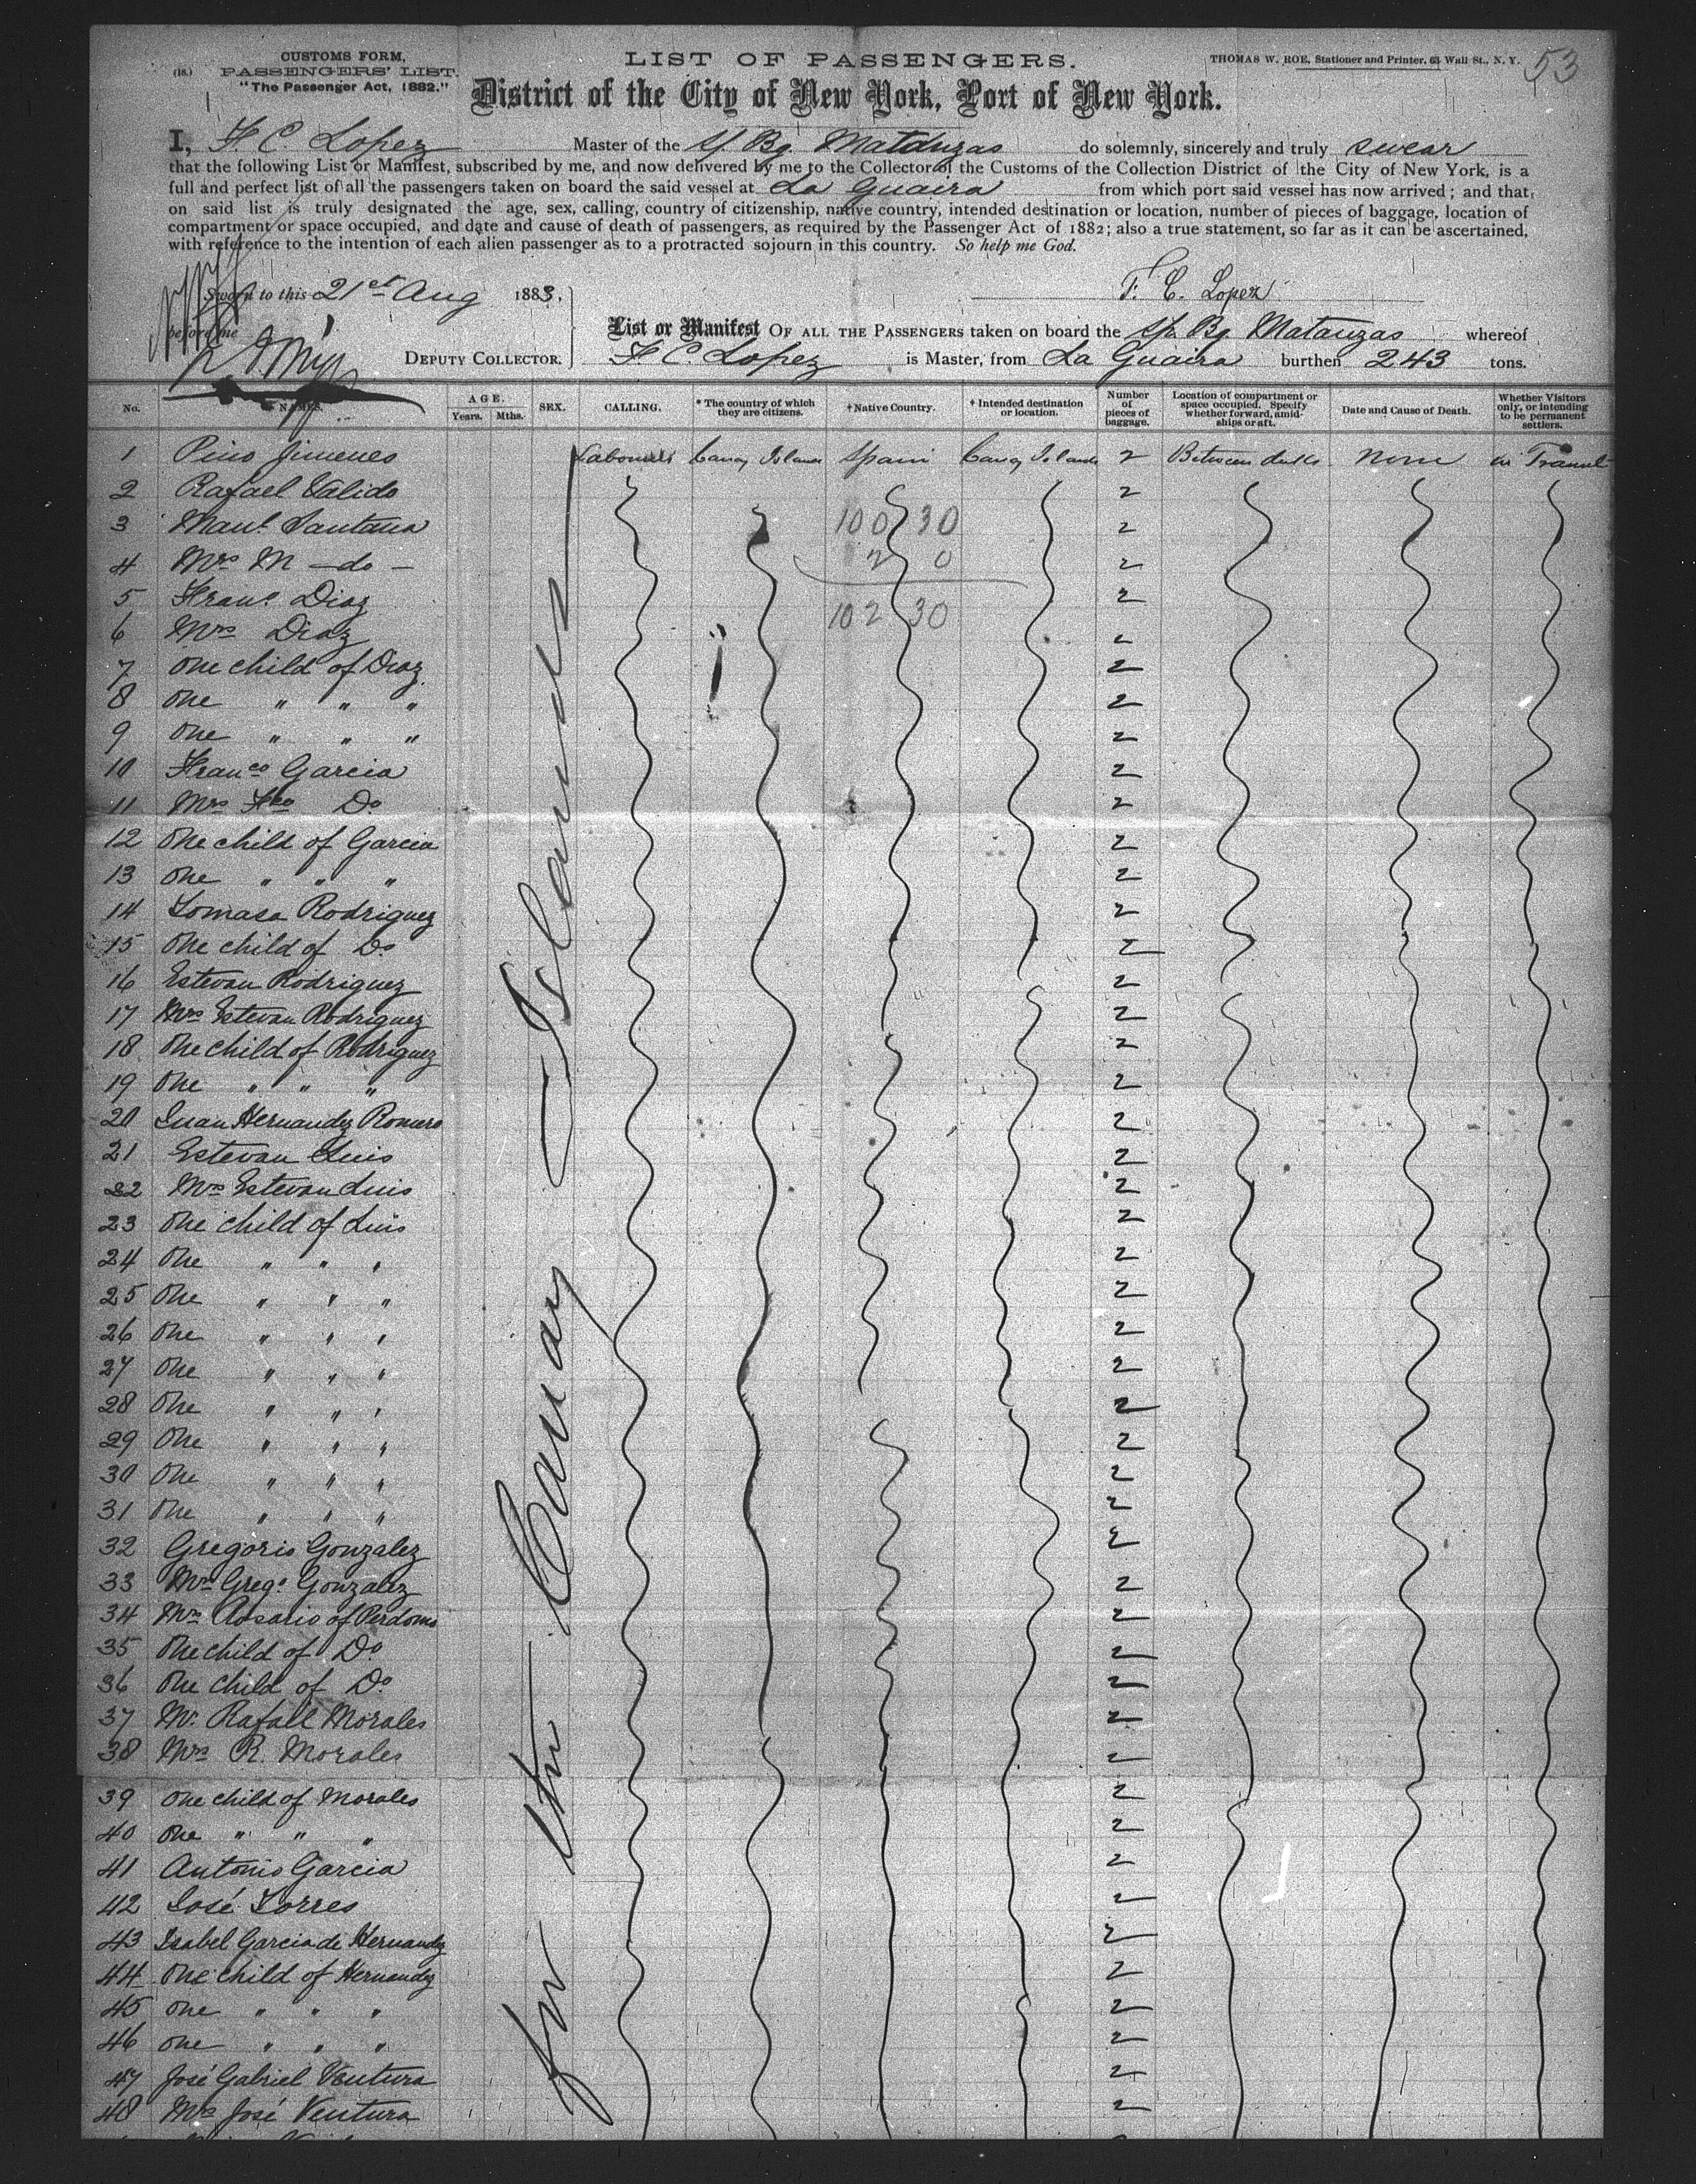 CUSTOMS FORM,
(18.) PASSENGERS' LIST.
"The Passenger Act, 1882."
LIST OF PASSENGERS.
THOMAS W. ROE, Stationer and Printer, 63 Wall St., N. Y.
53
District of the City of New York, Port of New York.
I, F. C. Lopez Master of the Sp Bg Matanzas do solemnly, sincerely and truly swear
that the following List or Manifest, subscribed by me, and now delivered by me to the Collector of the Customs of the Collection District of the City of New York, is a
full and perfect list of all the passengers taken on board the said vessel at La Guaira from which port said vessel has now arrived; and that
on said list is truly designated the age, sex, calling, country of citizenship, native country, intended destination or location, number of pieces of baggage, location of
compartment or space occupied, and date and cause of death of passengers, as required by the Passenger Act of 1882; also a true statement, so far as it can be ascertained,
with reference to the intention of each alien passenger as to a protracted sojourn in this country. So help me God.
Sworn to this 21st Aug 1883,
F. C. Lopez
before me
DEPUTY COLLECTOR.
List or Manifest OF ALL THE PASSENGERS taken on board the Sp. Bg Matanzas whereof
F. C. Lopez is Master, from La Guaira burthen 243 tons.
No. NAMES. AGE. Years. Mths. SEX. CALLING. * The country of which they are citizens. † Native Country. † Intended destination or location. Number of pieces of baggage. Location of compartment or space occupied. Specify whether forward, amidships or aft. Date and Cause of Death. Whether Visitors only, or intending to be permanent settlers.
1 Pino Jimenes Labourers Canay Islands Spain Canay Islands 2 Between decks None in Transit
2 Rafael Valido 2
3 Manl. Santana 100 30 2
4 Mrs M - do - 2 0 2
5 Franc. Diaz 102 30 2
6 Mrs Diaz 2
7 One child of Diaz 2
8 One " " " 2
9 One " " " 2
10 Franco Garcia 2
11 Mrs Fco Do 2
12 One child of Garcia 2
13 One " " " 2
14 Tomasa Rodriguez 2
15 One child of Do 2
16 Estevan Rodriguez 2
17 Mrs Estevan Rodriguez 2
18 One child of Rodriguez 2
19 One " " " 2
20 Juan Hernandez Romero 2
21 Estevan Luis 2
22 Mrs Estevan Luis 2
23 One child of Luis 2
24 One " " " 2
25 One " " " 2
26 One " " " 2
27 One " " " 2
28 One " " " 2
29 One " " " 2
30 One " " " 2
31 One " " " 2
32 Gregorio Gonzalez 2
33 Mrs Grego. Gonzalez 2
34 Mrs Rosario of Perdomo 2
35 One child of Do 2
36 One child of Do 2
37 Mr. Rafael Morales 2
38 Mrs R. Morales 2
39 One child of Morales 2
40 One " " " 2
41 Antonio Garcia 2
42 José Torres 2
43 Isabel Garcia de Hernandez 2
44 One child of Hernandez 2
45 one " " " 2
46 one " " " 2
47 José Gabriel Ventura 2
48 Mrs José Ventura 2
for the Canay Islands